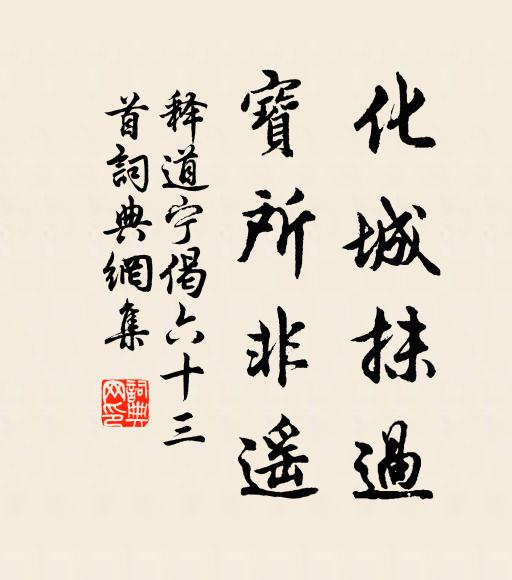 化城抹過
寶所非遥
释道宁偈六十三
首詞典網集
詞典
网印